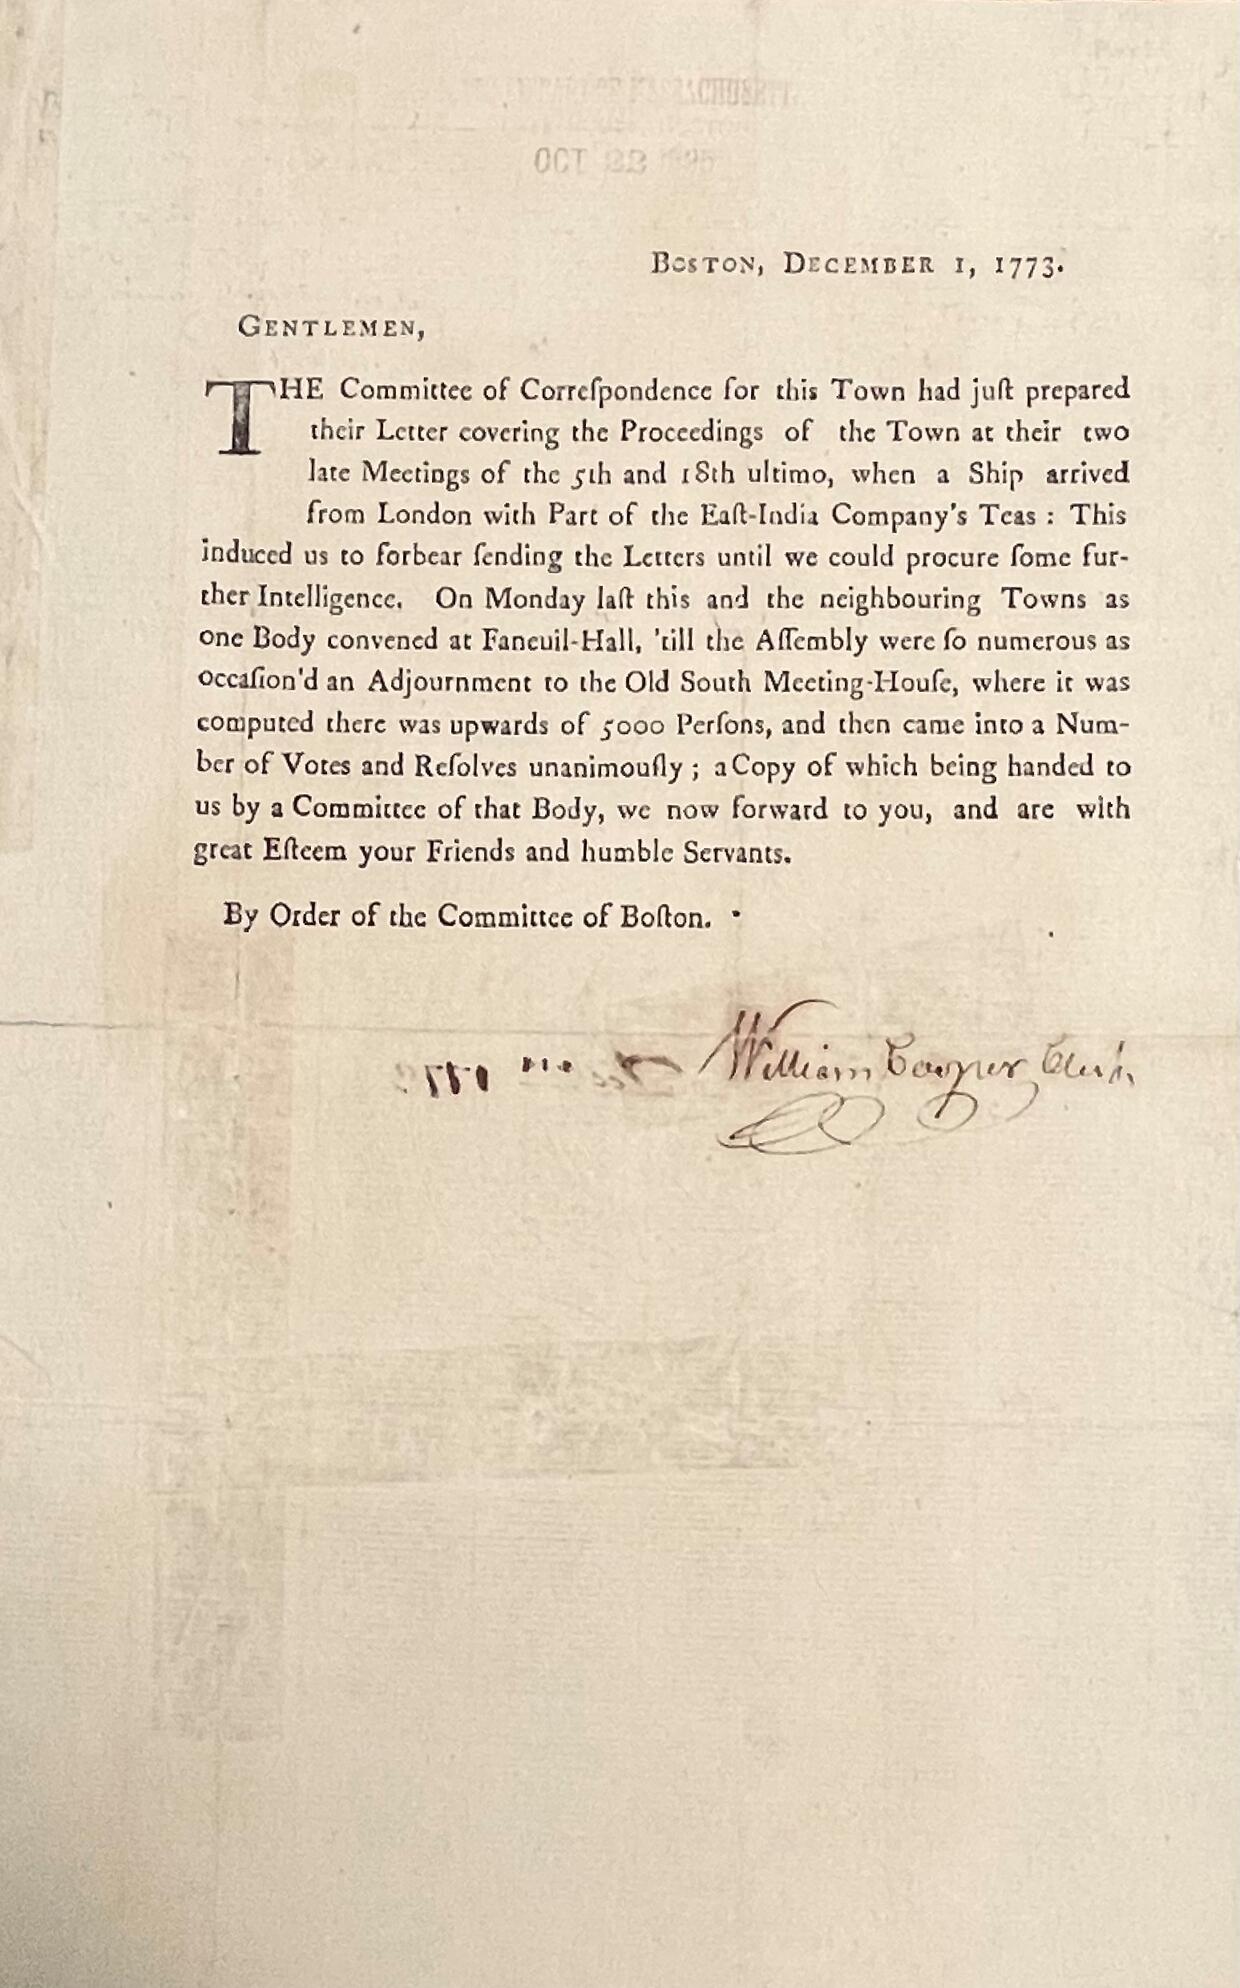 MASSACHUSETT
OCT 22
BOSTON, DECEMBER 1, 1773.
GENTLEMEN,
THE Committee of Correſpondence for this Town had juſt prepared
their Letter covering the Proceedings of the Town at their two
late Meetings of the 5th and 18th ultimo, when a Ship arrived
from London with Part of the Eaſt-India Company's Teas : This
induced us to forbear ſending the Letters until we could procure ſome fur-
ther Intelligence. On Monday laſt this and the neighbouring Towns as
one Body convened at Faneuil-Hall, 'till the Aſſembly were ſo numerous as
occaſion'd an Adjournment to the Old South Meeting-Houſe, where it was
computed there was upwards of 5000 Perſons, and then came into a Num-
ber of Votes and Reſolves unanimouſly ; a Copy of which being handed to
us by a Committee of that Body, we now forward to you, and are with
great Eſteem your Friends and humble Servants.
By Order of the Committee of Boſton.
William Cooper Clerk